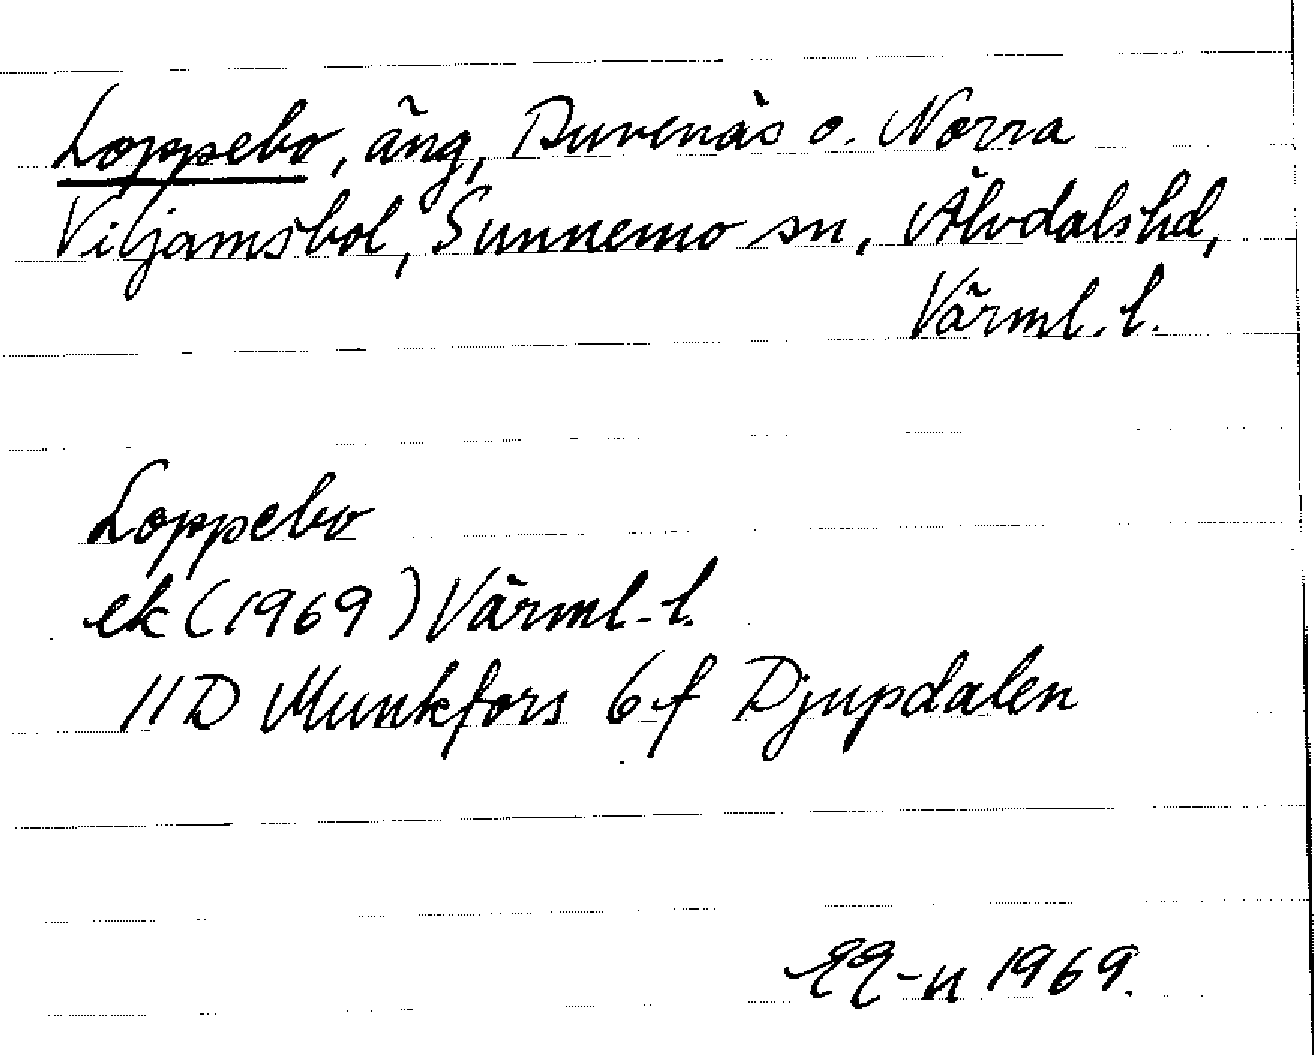 Loppebo, äng, Duvenäs o. Norra
Viljamsbol, Sunnemo sn, Älvdals hd,
Värml. l.
Loppebo
ek (1969) Värml. l.
11D Munkfors 6f Djupdalen
1969.